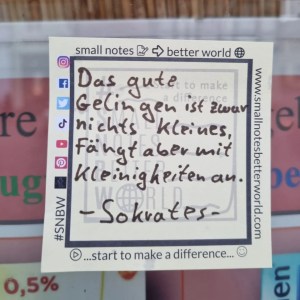 small notes better world
Das gute
Gelingen ist zwar
nichts kleines,
fängt aber mit
Kleinigkeiten an.
-Sokrates-
...start to make a difference...
#SNBW
www.smallnotesbetterworld.com
0,5%